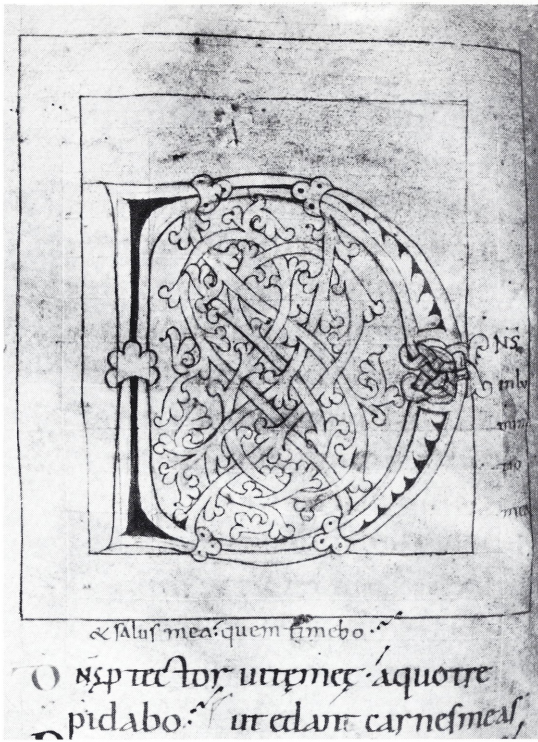 D
NS̄
& salus mea. quem timebo.
D NSP tector uitę meę. a quo tre
pidabo. ut edant carnes meas